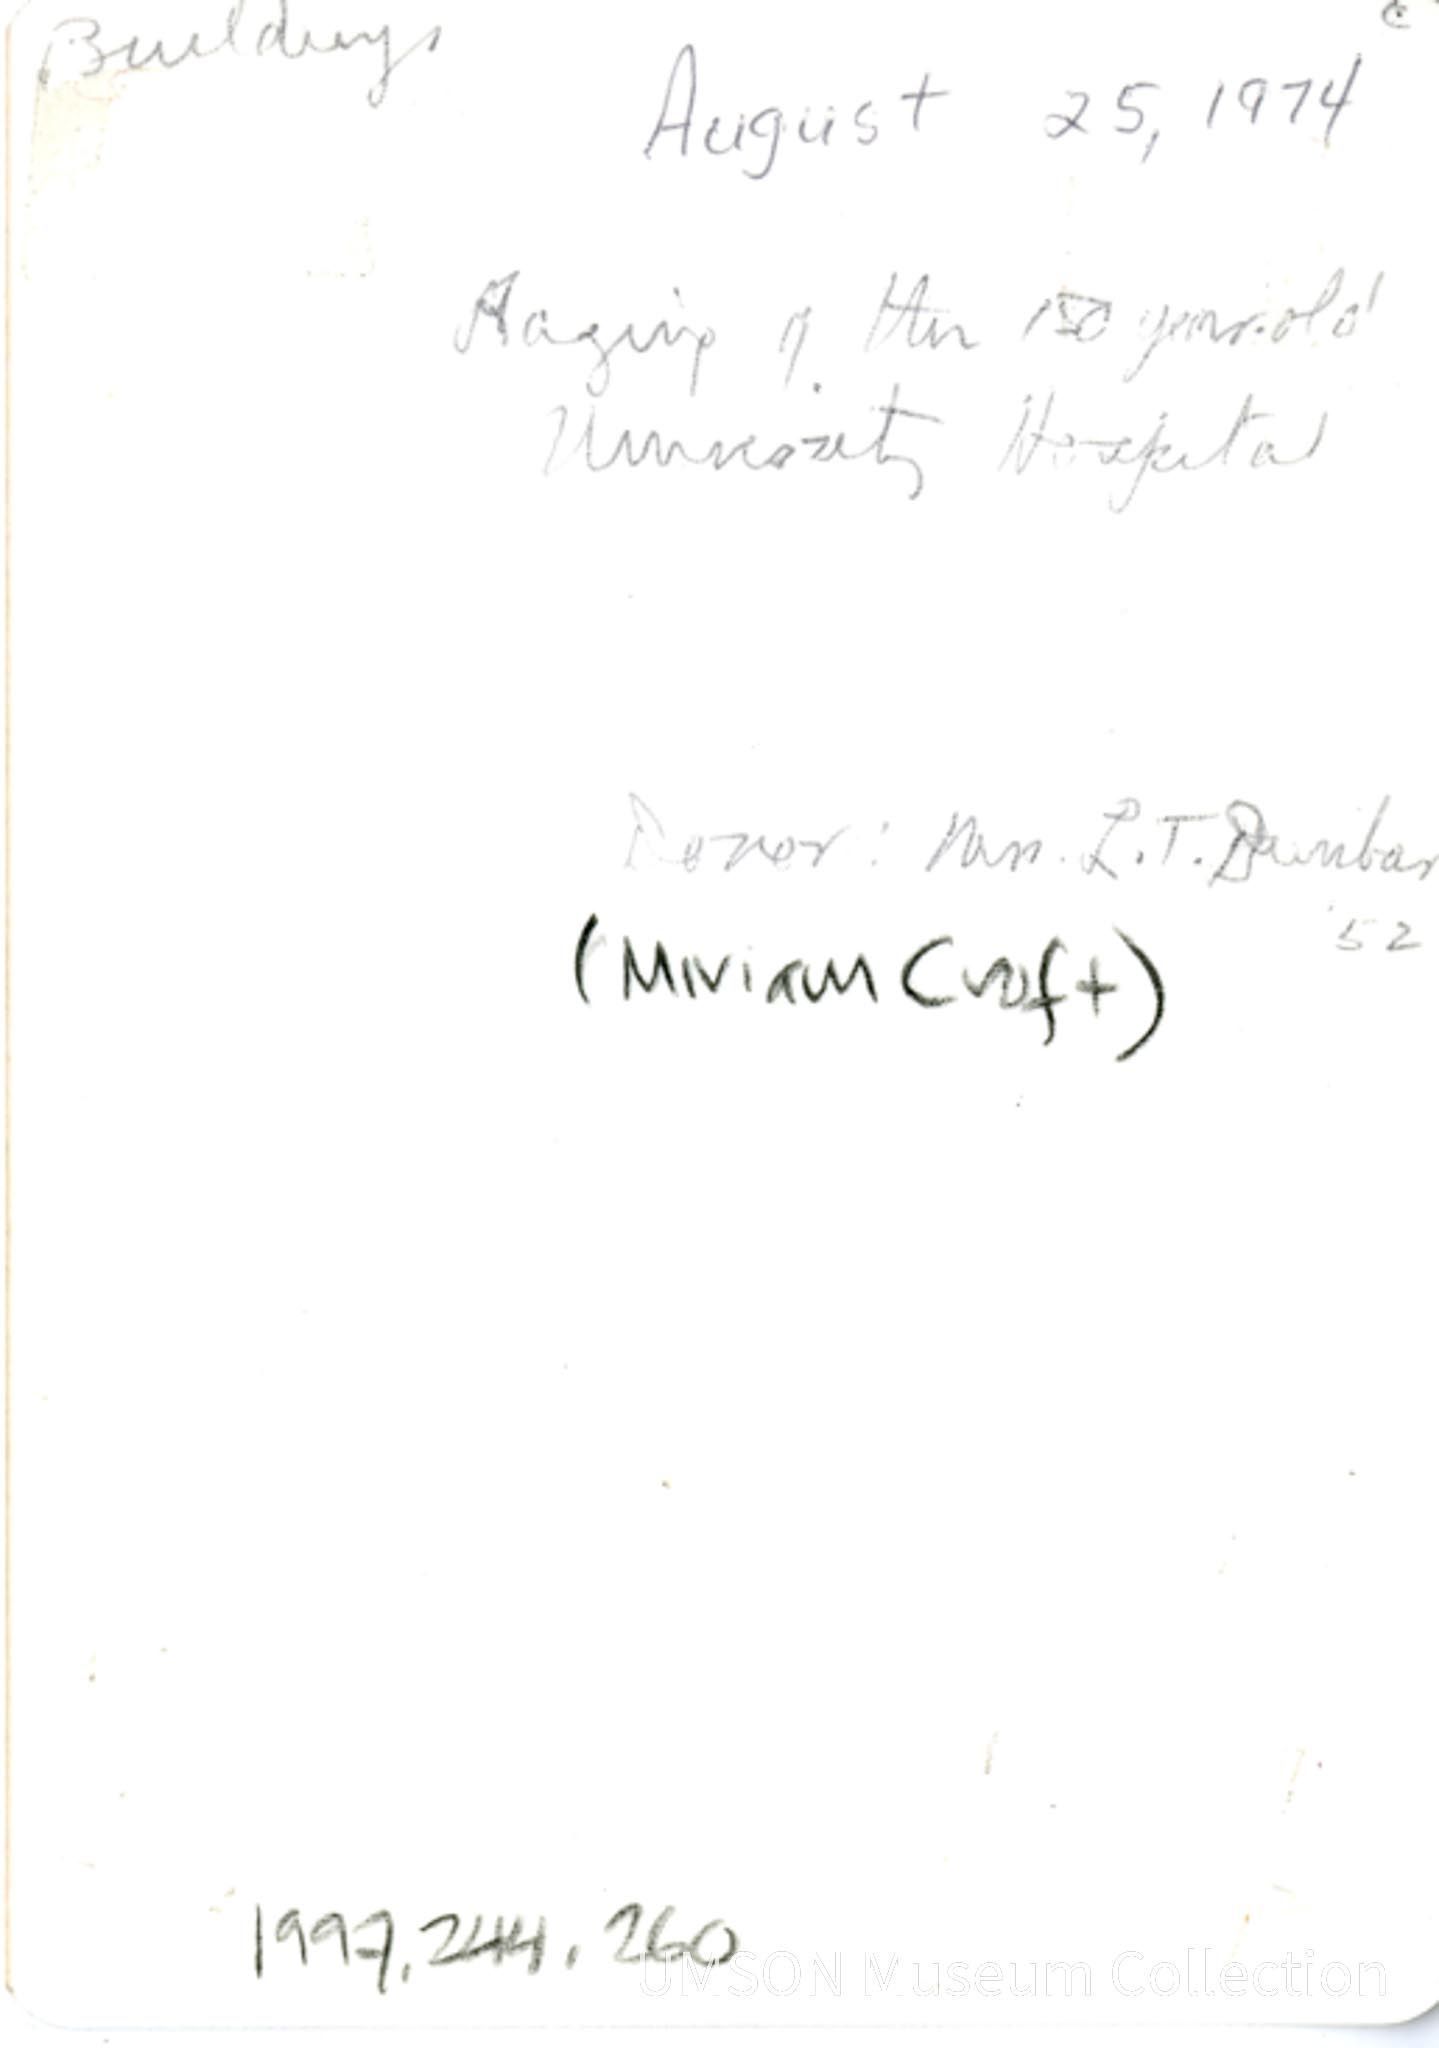 Buildings
c
August 25, 1974
Razing of the 150 year old
University Hospital
Donor: Mrs. L.T. Dunbar
'52
(Miriam Croft)
1997.244.260
UMSON Museum Collection